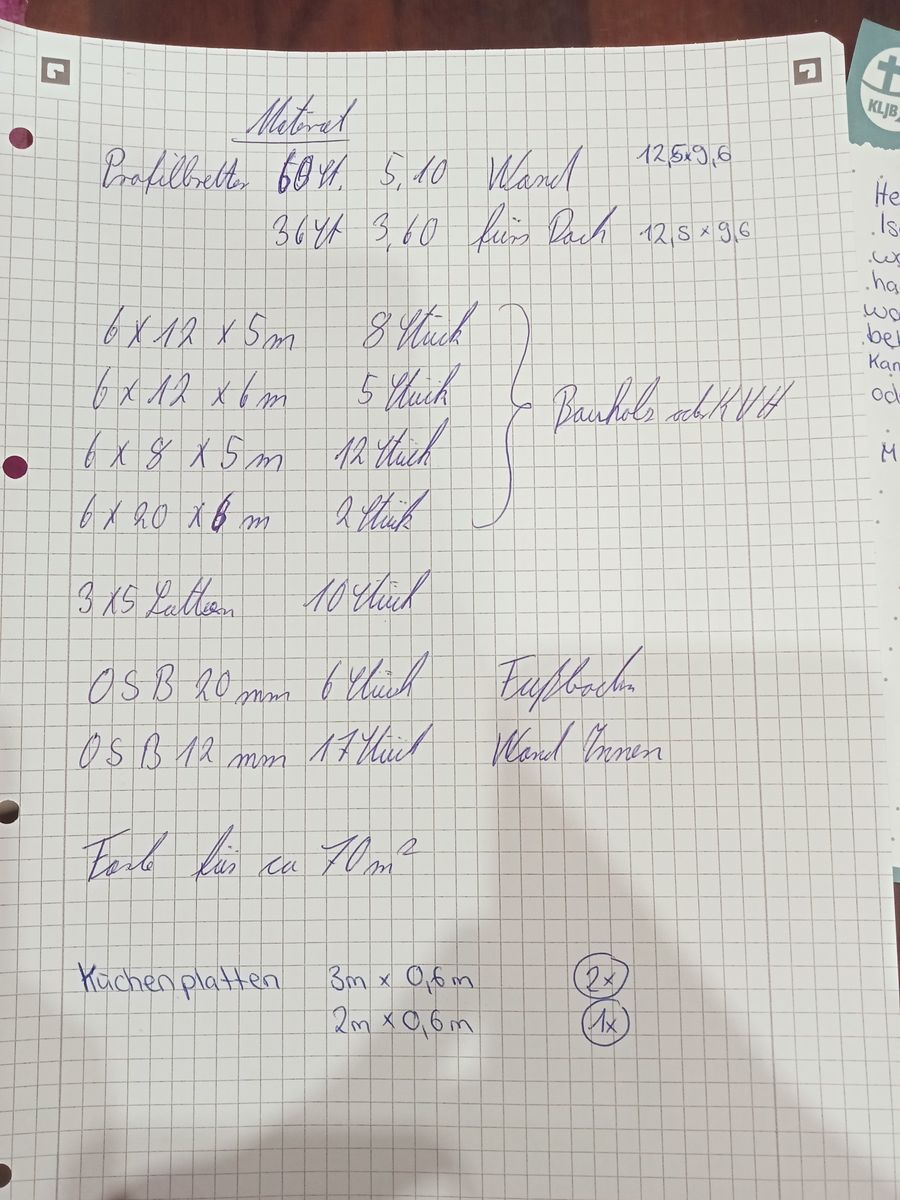 Material
Profilbretter 60 St. 5,10 Wand 12,5x9,6
36 St 3,60 fürs Dach 12,5 x 9,6
6 x 12 x 5m 8 Stück
6 x 12 x 6m 5 Stück
Bauholz oder KVH
6 x 8 x 5m 12 Stück
6 x 20 x 6 m 2 Stück
3 x5 Latten 10 Stück
OSB 20 mm 6 Stück Fußboden
OSB 12 mm 17 Stück Wand Innen
Farbe für ca 70m²
Küchenplatten 3m x 0,6m 2x
2m x 0,6m 1x
KLJB